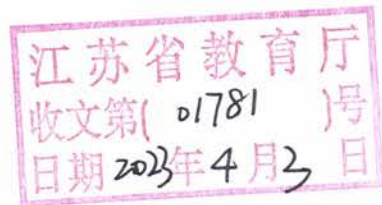 江苏省教育厅
收文第( 01781 )号
日期 2023年 4 月 3 日